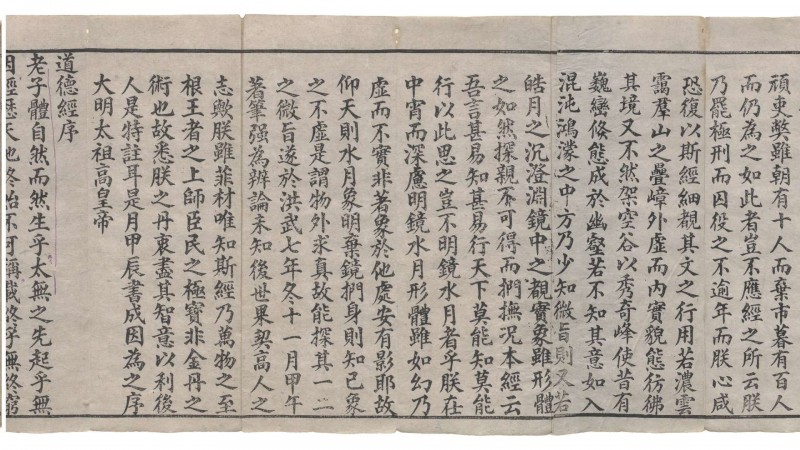 頑吏獘雖朝有十人而棄市暮有百人
而仍為之如此者豈不應經之所云朕
乃罷極刑而囚役之不逾年而朕心咸
恐復以斯經細覩其文之行用若濃雲
靄羣山之疊嶂外虛而內實貌態彷彿
其境又不然架空谷以秀奇峰使昔有
巍巒倐態成於幽壑若不知其意如入
混沌鴻濛之中方乃少知微旨則又若
皓月之沉澄淵鏡中之覩實象雖形體
之如然探親不可得而捫撫況本經云
吾言甚易知甚易行天下莫能知莫能
行以此思之豈不明鏡水月者乎朕在
中宵而深慮明鏡水月形體雖如幻乃
虛而不實非著象於他處安有影耶故
仰天則水月象明棄鏡捫身則知已象
之不虛是謂物外求真故能探其一二
之微旨遂於洪武七年冬十一月甲午
著筆强為辨論未知後世果契高人之
志歟朕雖菲材唯知斯經乃萬物之至
根王者之上師臣民之極寶非金丹之
術也故悉朕之丹衷盡其智意以利後
人是特註耳是月甲辰書成因為之序
大明太祖高皇帝
道德經序
老子體自然而然生乎太無之先起乎無
因經歷天地終始不可稱載終乎無終窮